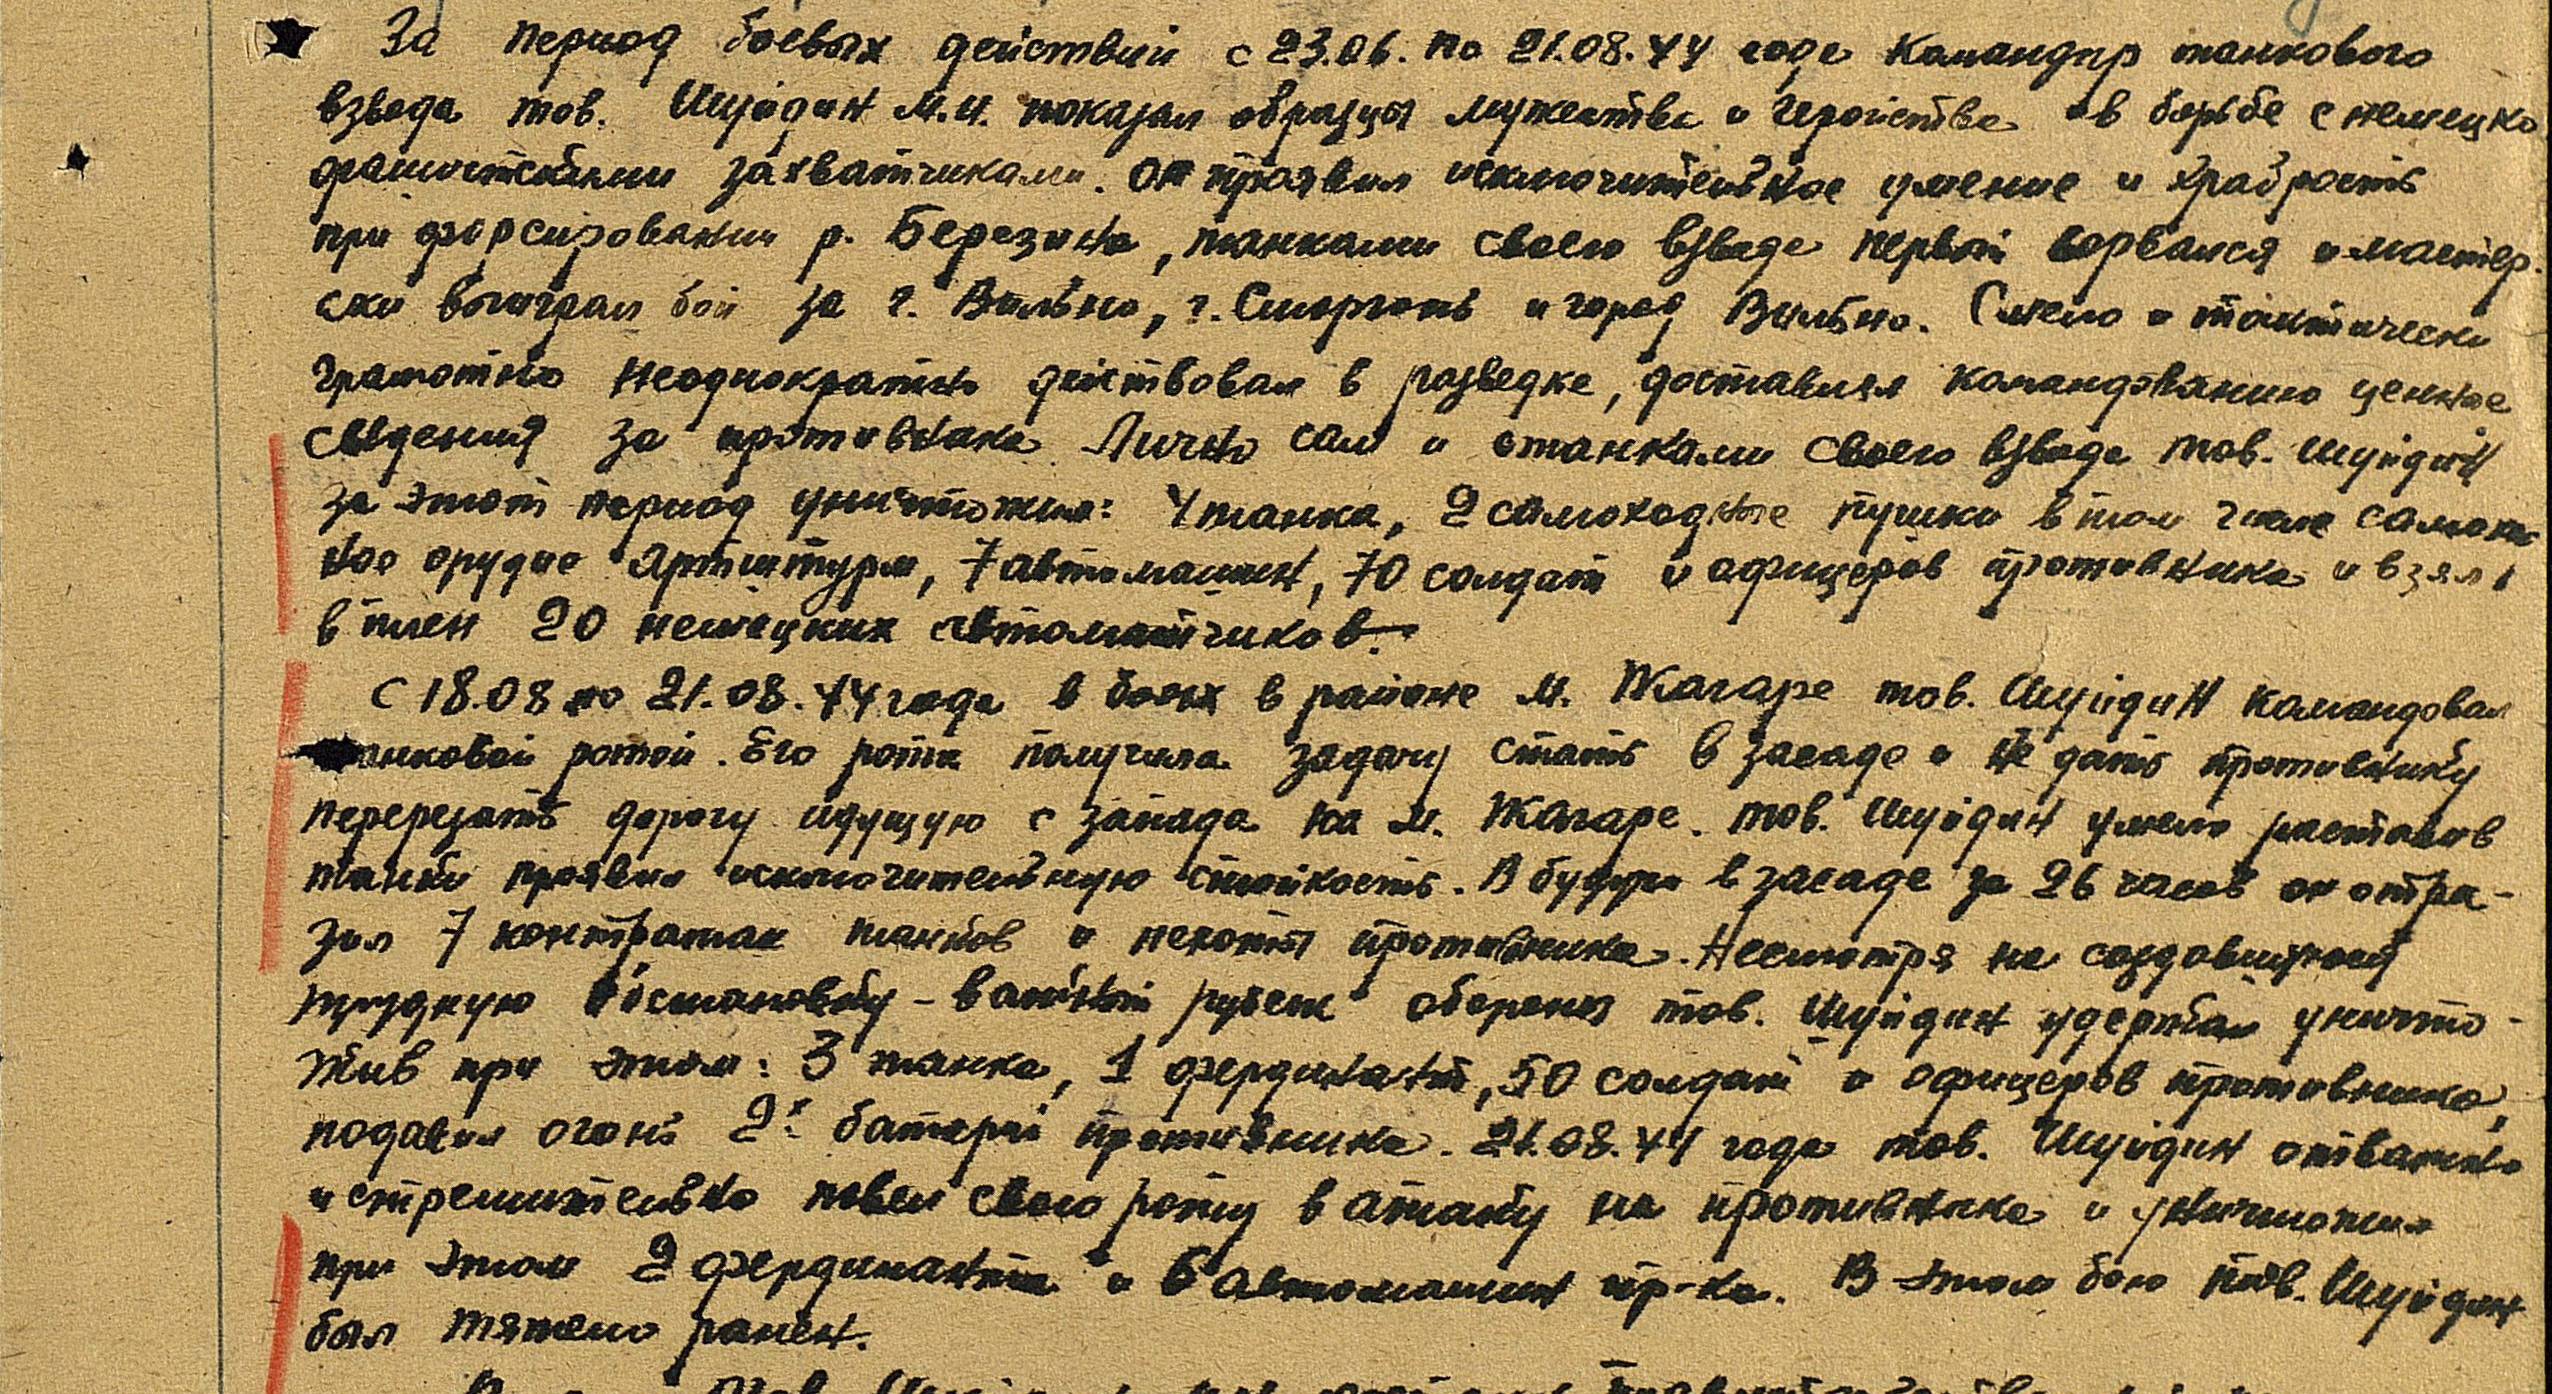 За период боевых действий с 23.06. по 21.08.44 года Командир танкового
взвода тов. Шуйдин М.И. показал образцы мужества и геройства в борьбе с немецко
фашистскими захватчиками. Он проявил исключительное умение и храбрость
при форсировании р. Березина, танками своего взвода первый ворвался и мастер-
ски выиграл бой за г. Вильно, г. Сморгонь и город Вильно. Смело и тактически
грамотно неоднократно действовал в разведке, доставлял командованию ценные
сведения за противника Лично сам и с танками своего взвода тов. Шуйдин
за этот период уничтожил: 4 танка, 2 самоходные пушки в том числе самоход
ное орудие Артштурм, 7 автомашин, 70 солдат и офицеров противника и взял
в плен 20 немецких автоматчиков.
С 18.08 по 21.08.44 года в боях в районе м. Жагаре тов. Шуйдин командовал
танковой ротой. Его рота получила задачу стать в засаде и не дать противнику
перерезать дорогу идущую с запада на м. Жагаре. тов. Шуйдин умело расставив
танки проявил исключительную стойкость. Будучи в засаде за 26 часов он отра-
зил 7 контратак танков и пехоты противника. Несмотря на создавшуюся
трудную обстановку - важный рубеж обороны тов. Шуйдин удержал уничто-
жив при этом: 3 танка, 1 фердинант, 50 солдат и офицеров противника,
подавил огонь 2х батарей противника. 21.08.44 года тов. Шуйдин отважно
и стремительно повел свою роту в атаку на противника и уничтожил
при этом 2 фердинанта и 6 автомашин пр-ка. В этом бою тов. Шуйдин
был тяжело ранен.